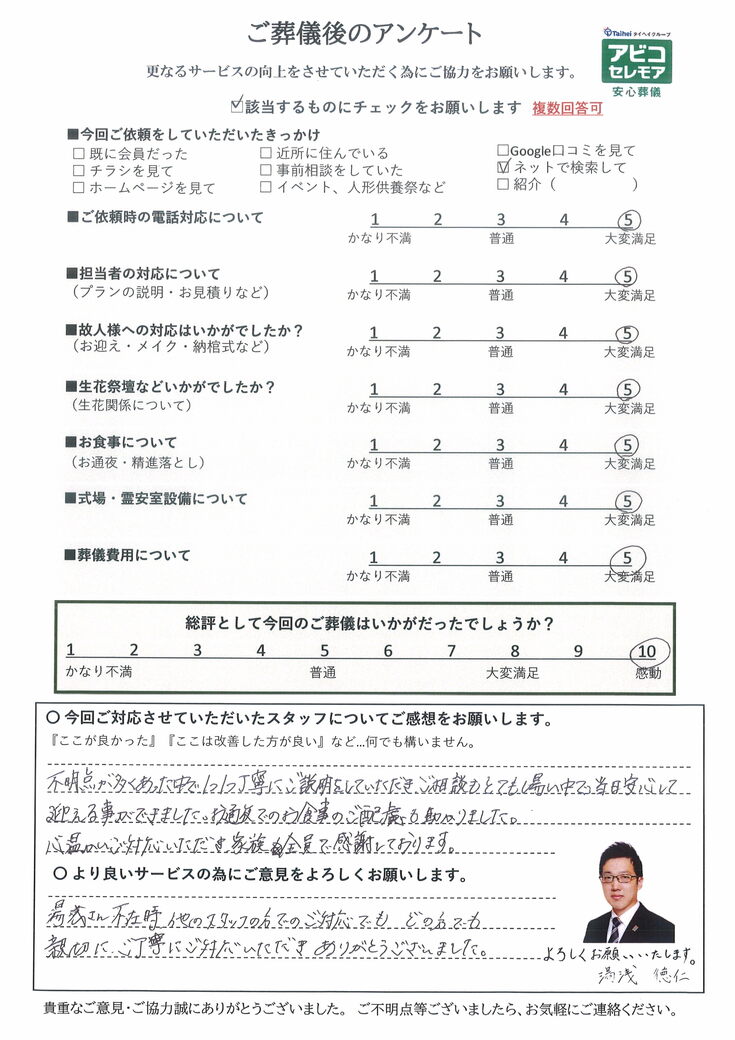 ご葬儀後のアンケート
Taihei タイヘイグループ
アビコ
セレモア
安心葬儀
更なるサービスの向上をさせていただく為にご協力をお願いします。
☑該当するものにチェックをお願いします 複数回答可
■今回ご依頼をしていただいたきっかけ
□ 既に会員だった □ 近所に住んでいる □Google口コミを見て
□ チラシを見て □ 事前相談をしていた ☑ ネットで検索して
□ ホームページを見て □ イベント、人形供養祭など □ 紹介（ ）
■ご依頼時の電話対応について 1 2 3 4 5
かなり不満 普通 大変満足
■担当者の対応について 1 2 3 4 5
（プランの説明・お見積りなど） かなり不満 普通 大変満足
■故人様への対応はいかがでしたか？ 1 2 3 4 5
（お迎え・メイク・納棺式など） かなり不満 普通 大変満足
■生花祭壇などいかがでしたか？ 1 2 3 4 5
（生花関係について） かなり不満 普通 大変満足
■お食事について 1 2 3 4 5
（お通夜・精進落とし） かなり不満 普通 大変満足
■式場・霊安室設備について 1 2 3 4 5
かなり不満 普通 大変満足
■葬儀費用について 1 2 3 4 5
かなり不満 普通 大変満足
総評として今回のご葬儀はいかがだったでしょうか？
1 2 3 4 5 6 7 8 9 10
かなり不満 普通 大変満足 感動
〇 今回ご対応させていただいたスタッフについてご感想をお願いします。
『ここが良かった』『ここは改善した方が良い』など...何でも構いません。
不明点が多くあった中で1つ1つ丁寧にご説明をしていただきご相談もとてもし易い中で当日安心して
迎える事ができました。お通夜でのお食事のご配慮も助かりました。
心温かいご対応いただき家族全員で感謝しております。
〇 より良いサービスの為にご意見をよろしくお願いします。
湯浅さん不在時他のスタッフの方でのご対応でも どの方でも
親切に ご丁寧にご対応いただき ありがとうございました。
よろしくお願いいたします。
湯浅 徳仁
貴重なご意見・ご協力誠にありがとうございました。 ご不明点等ございましたら、お気軽にご連絡ください。